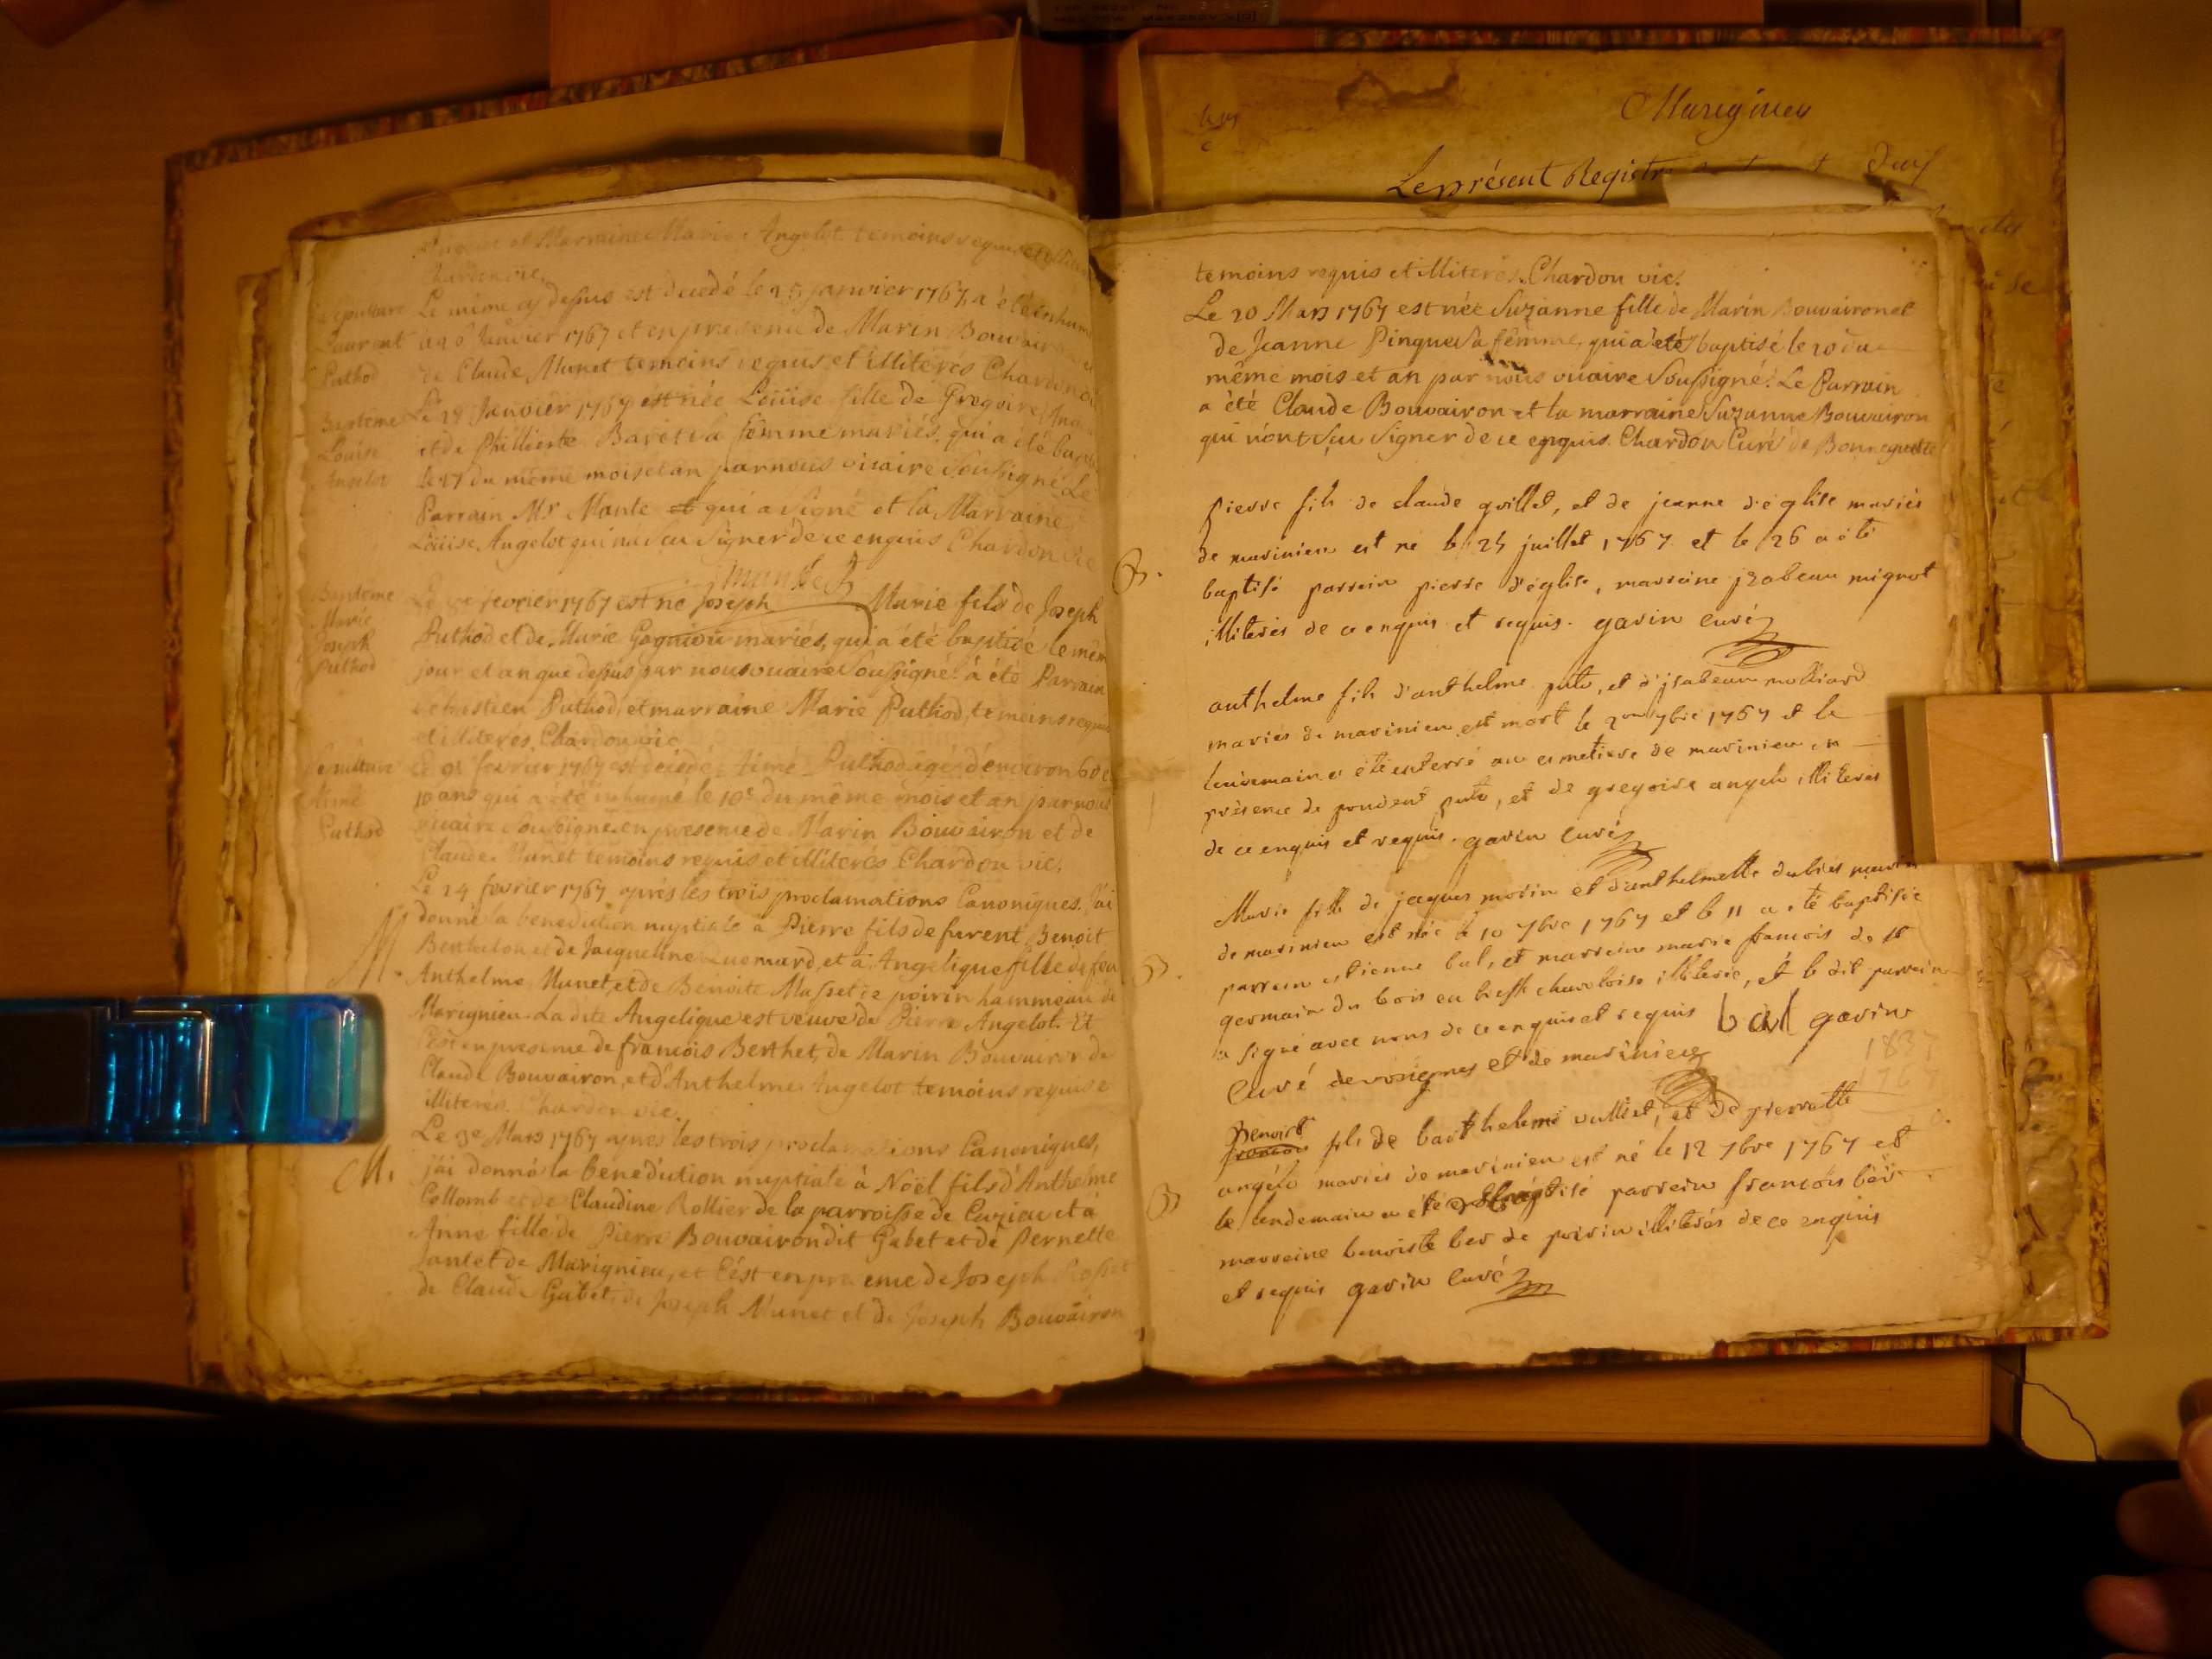 et Marraine Marie Angelot temoins requis et illiteres
Chardon vic.
Sepulture Le même cy dessus est decedé le 25 janvier 1767, a été inhumé
Laurent janvier 1767 et en presence de Marin Bouvairon et
Puthod de Claude Munet temoins requis et illiterés Chardon vic
Bapteme Le 27 Janvier 1767 est née Loüise fille de Gregoire
Loüise et de Phillierte Baret sa femme mariés, qui a été
Angelot le 27 du même mois et an par nous vicaire Soussigné Le
Parrain Mr. Mante et qui a signé et la Marraine
Loüise Angelot qui n'a Sçu Signer de ce enquis Chardon vic
Mante
Bapteme fevrier 1767 est né Joseph Marie fils de Joseph
Marie Puthod et de Marie Gagniou mariés, qui a été baptisé le même
Joseph jour et an que dessus par nous vicaire Soussigné. a été Parrain
Puthod Sebastien Puthod, et marraine Marie Puthod, temoins requis
et illiteres, Chardon vic
Sepulture fevrier 1767 est decedé, Aimé Puthod agé d'environ 60 et
Aimé 10 ans qui a été inhumé le 10e du même mois et an par nous
Puthod vicaire Soussigné en presence de Marin Bouvairon et de
Claude Munet temoins requis et illiterés Chardon vic.
Le 24 fevrier 1767 après les trois proclamations Canoniques. J'ai
M. donné la benediction nuptiale à Pierre fils de furent Benoit
Berthelon et de Jacqueline et à Angelique fille de feu
Anthelme Munet, et de Benoite Masset de poirin hammeau de
Marignieu. La dite Angelique est veuve de Pierre Angelot. Et
C'est en presence de francois Berthet, de Marin Bouvairon de
Claude Bouvairon, et d'Anthelme Angelot temoins requis e
illiteres. Chardon vic.
Le 3e Mars 1767 après les trois proclamations Canoniques,
M. j'ai donné la benediction nuptiale à Noël fils d'Anthelme
Collomb et de Claudine Rollier de la parroisse de Cuzieu et à
Anne fille de Pierre Bouvairon dit Gubet et de Pernette
Jantet de Marignieu, et C'est en presence de Joseph Rosset
de Claude Gubet, de Joseph Munet et de Joseph Bouvairon
Marignieu
Le présent Registre
temoins requis et illiterés. Chardon vic.
Le 20 Mars 1767 est née Suzanne fille de Marin Bouvairon et
de Jeanne Pinguet sa femme, qui a été baptisé le 20 du
même mois et an par nous vicaire Soussigné. Le Parrain
a été Claude Bouvairon et la marraine Suzanne Bouvairon
qui n'ont Sçu Signer de ce enquis. Chardon Curé de
pierre fils de claude guillet, et de jeanne d'église mariés
de marinieu est né le 25 juillet 1767 et le 26 a été
B. baptisé parrein pierre d'église, marreine jzabeau mignot
illiterés de ce enquis et requis. gavin curé
anthelme fils d'anthelme puto, et d'jzabeau molliard
mariés de marinieu est mort le 2me 7bre 1767 et le
lendemain a été enterré au cimetiere de marinieu en
présence de prudent puto, et de gregoire angelo illiterés
de ce enquis et requis. gavin curé
Marie fille de jaques morin et d'anthelmette dubiés mariés
de marinieu est née le 10 7bre 1767 et le 11 a été baptisée
B. parrein etienne bal, et marreine marie francois de st
germain du bois en bresse chaloise illiterée, et le dit parrein
a signé avec nous de ce enquis et requis bal gavin
Curé de vosignes et de marinieu
1837
1767
Benoist
francois fils de barthelemi vulliet, et de pierrette
angélo mariés de marinieu est né le 12 7bre 1767 et
B le lendemain a été baptisé parrein francois ber
marreine benoiste ber de poirin illiterés de ce enquis
et requis gavin curé